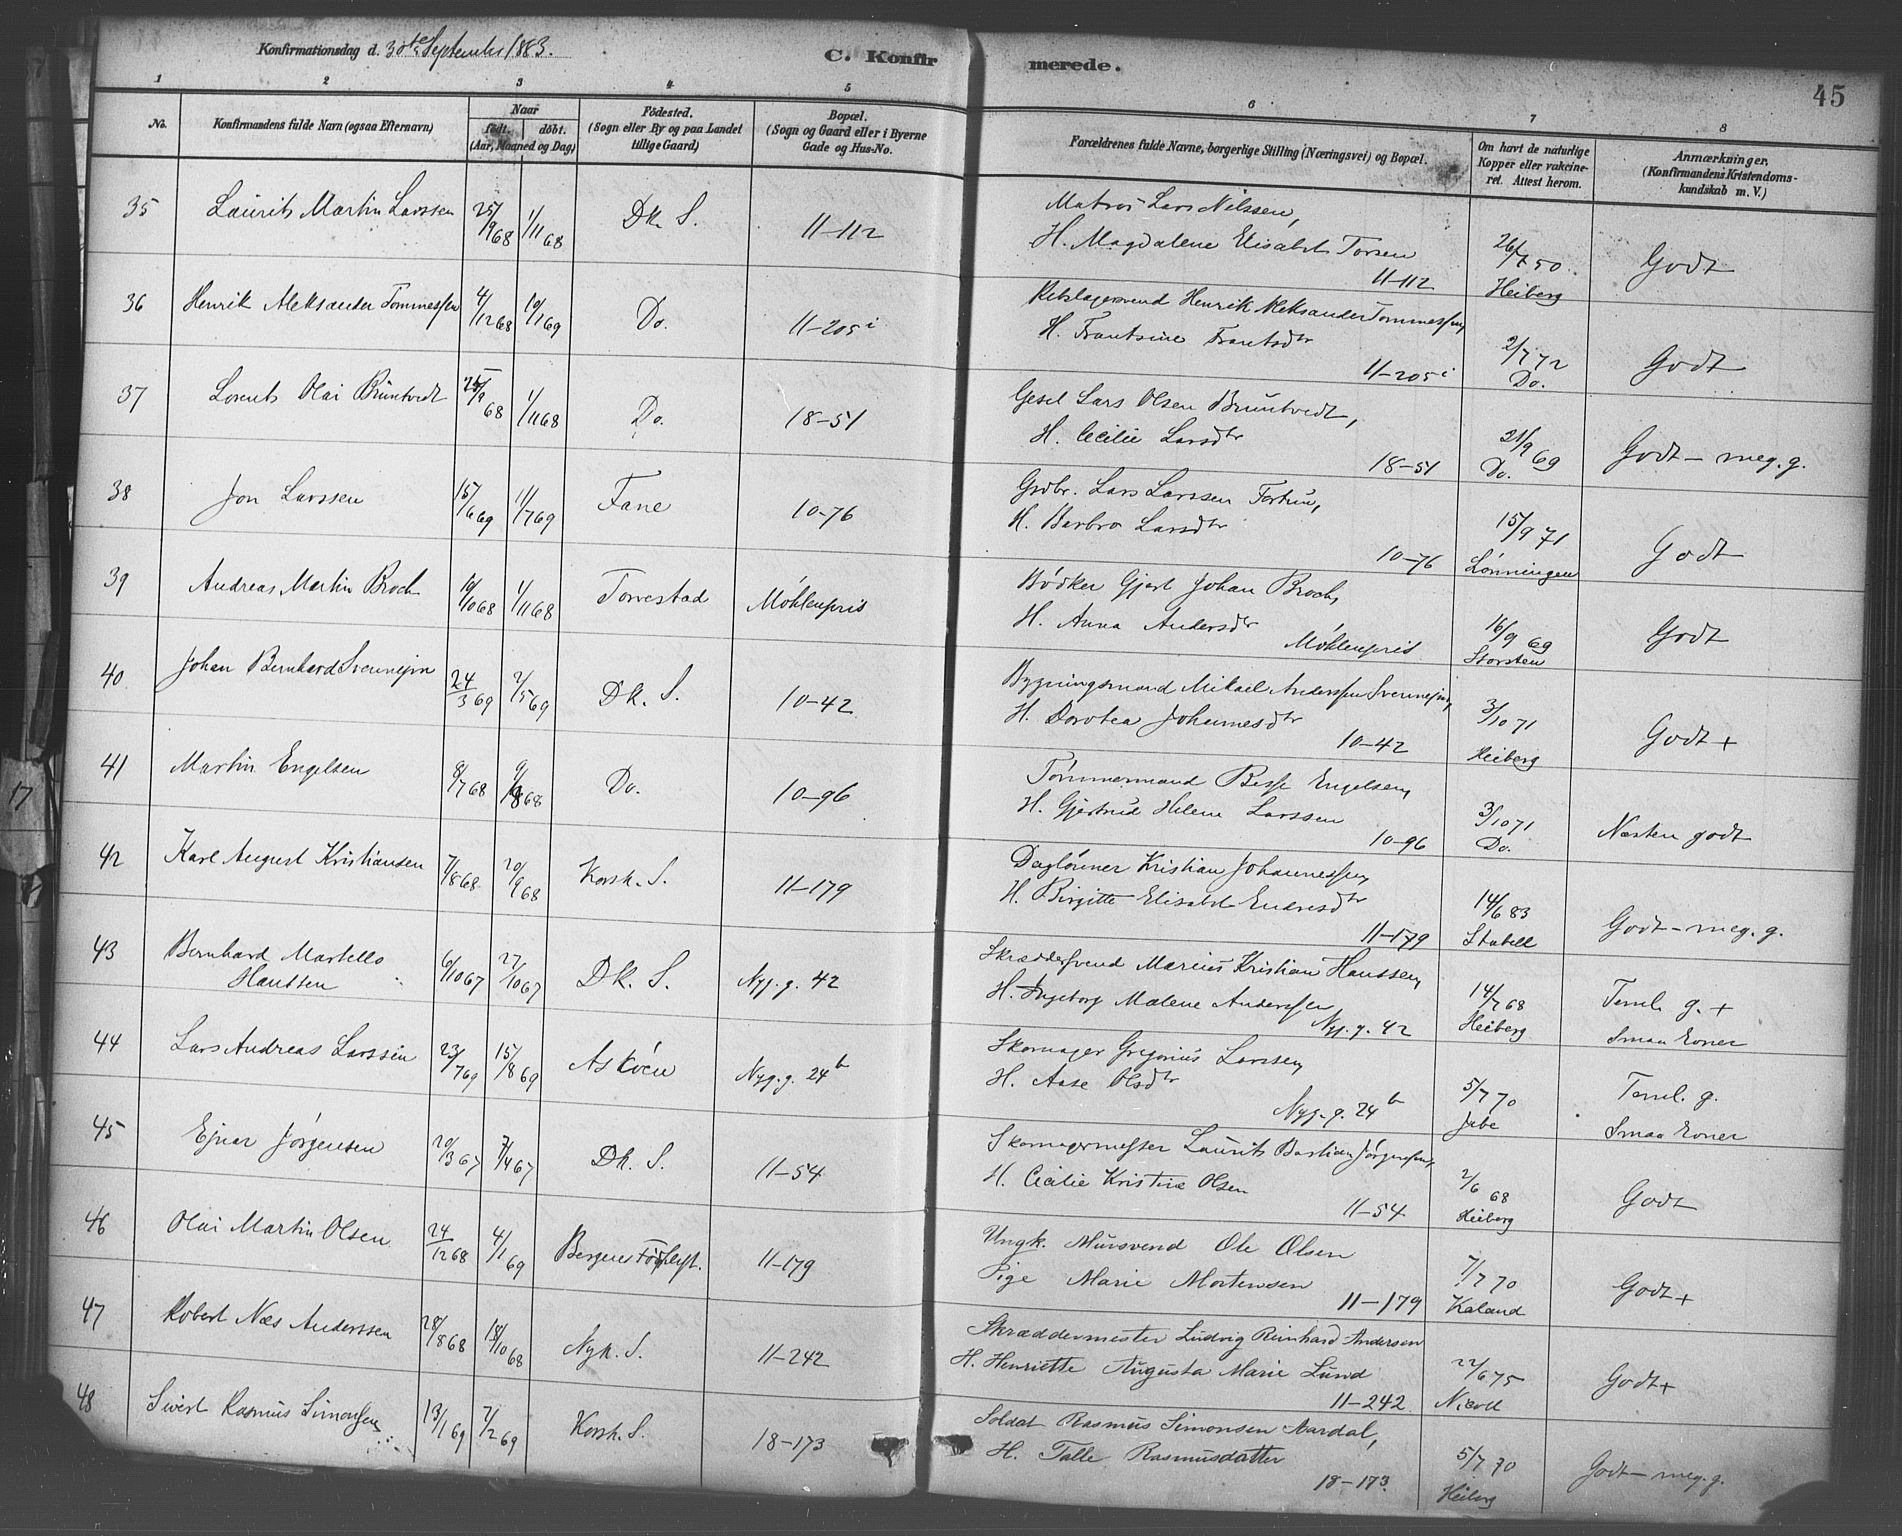 Konfirmationsdag d. 30te September 1883.
C. Konfirmerede.
45
1 2 3 4 5 6 7 8
No.
Konfirmandens fulde Navn (ogsaa Efternavn)
Naar
født. døbt.
(Aar, Maaned og Dag)
Fødested.
(Sogn eller By og paa Landet
tillige Gaard)
Bopæl.
(Sogn og Gaard eller i Byerne
Gade og Hus-No.
Forældrenes fulde Navne, borgerlige Stilling (Næringsvei) og Bopæl.
Om havt de naturlige
Kopper eller vakcine-
ret. Attest herom.
Anmærkninger.
(Konfirmandens Kristendoms-
kundskab m. V.)
35 Laurits Martin Larssen 25/9 68 1/11 68 Dk. S. 11-112 Matros Lars Nilssen,
H. Magdalene Elisabet Torsen
11-112 26/7 50 Heiberg Godt
36 Henrik Aleksander Tommessen 4/12 68 10/1 69 Do. 11-205 i Rebslagersvend Henrik Aleksander Tommessen,
H. Frantsine Frantsdtr
11-205 i 2/7 72 Do. Godt
37 Lorents Olai Bruntvedt 25/9 68 1/11 68 Do. 18-51 Gesel Lars Olsen Bruntvedt,
H. Cecilie Larsdtr
18-51 21/9 69 Do. Godt - meg. g.
38 Jon Larssen 15/6 69 1/7 69 Fane 10-76 Grdbr. Lars Larssen Fortun,
H. Barbro Larsdtr
10-76 15/9 71 Lønningen Godt
39 Andreas Martin Broch 10/10 68 1/11 68 Torvestad Møhlenpris Bødker Gjert Johan Broch,
H. Anna Andersdtr
Møhlenpris 16/9 69 Storsten Godt
40 Johan Bernhard 24/3 69 2/5 69 Dk. S. 10-42 Bygningsmand Mikael Anderssen
H. Dorotea Johannesdtr
10-42 3/10 71 Heiberg Godt +
41 Martin Engelsen 8/7 68 9/8 68 Do. 10-96 Tømmermand Besse Engelsen,
H. Gjertrud Helene Larssen
10-96 3/10 71 Do. Næsten godt
42 Karl August Kristiansen 7/8 68 20/9 68 Korsk. S. 11-179 Daglønner Kristian Johannessen,
H. Birgitte Elisabet Endresdtr
11-179 14/6 83 Stabell Godt - meg. g.
43 Bernhard Martello
Hanssen 6/10 67 27/10 67 Dk. S. Nyg. g. 42 Skræddersvend Marcus Kristian Hanssen,
H. Ingeborg Malene Anderssen
Nyg. g. 42 14/7 68 Heiberg Teml. g. +
Smaa Evner
44 Lars Andreas Larssen 23/7 69 15/8 69 Askøen Nyg. g. 24 b Skomager Gregorius Larssen,
H. Aase Olsdtr
Nyg. g. 24 b 5/7 70 Jabe Teml. g.
Smaa Evner
45 Ejnar Jørgensen 20/3 67 7/4 67 Dk. S. 11-54 Skomagermester Laurits Bastian Jørgensen,
H. Cecilie Kristine Olsen
11-54 2/6 68 Heiberg Godt
46 Olai Martin Olsen 24/12 68 4/1 69 Bergens Fødselsst. 11-179 Ungk. Mursvend Ole Olsen
Pige Marie Mortensen
11-179 7/7 70 Kaland Godt +
47 Robert Næs Anderssen 28/8 68 18/10 68 Nyk. S. 11-242 Skræddermester Ludvig Reinhard Andersen
H. Henriette Augusta Marie Lund
11-242 22/6 75 Nicoll Godt +
48 Sivert Rasmus Simonsen 13/1 69 7/2 69 Korsk. S. 18-173 Soldat Rasmus Simonsen Aardal,
H. Talle Rasmusdatter
18-173 5/7 70 Heiberg Godt - meg. g.
17